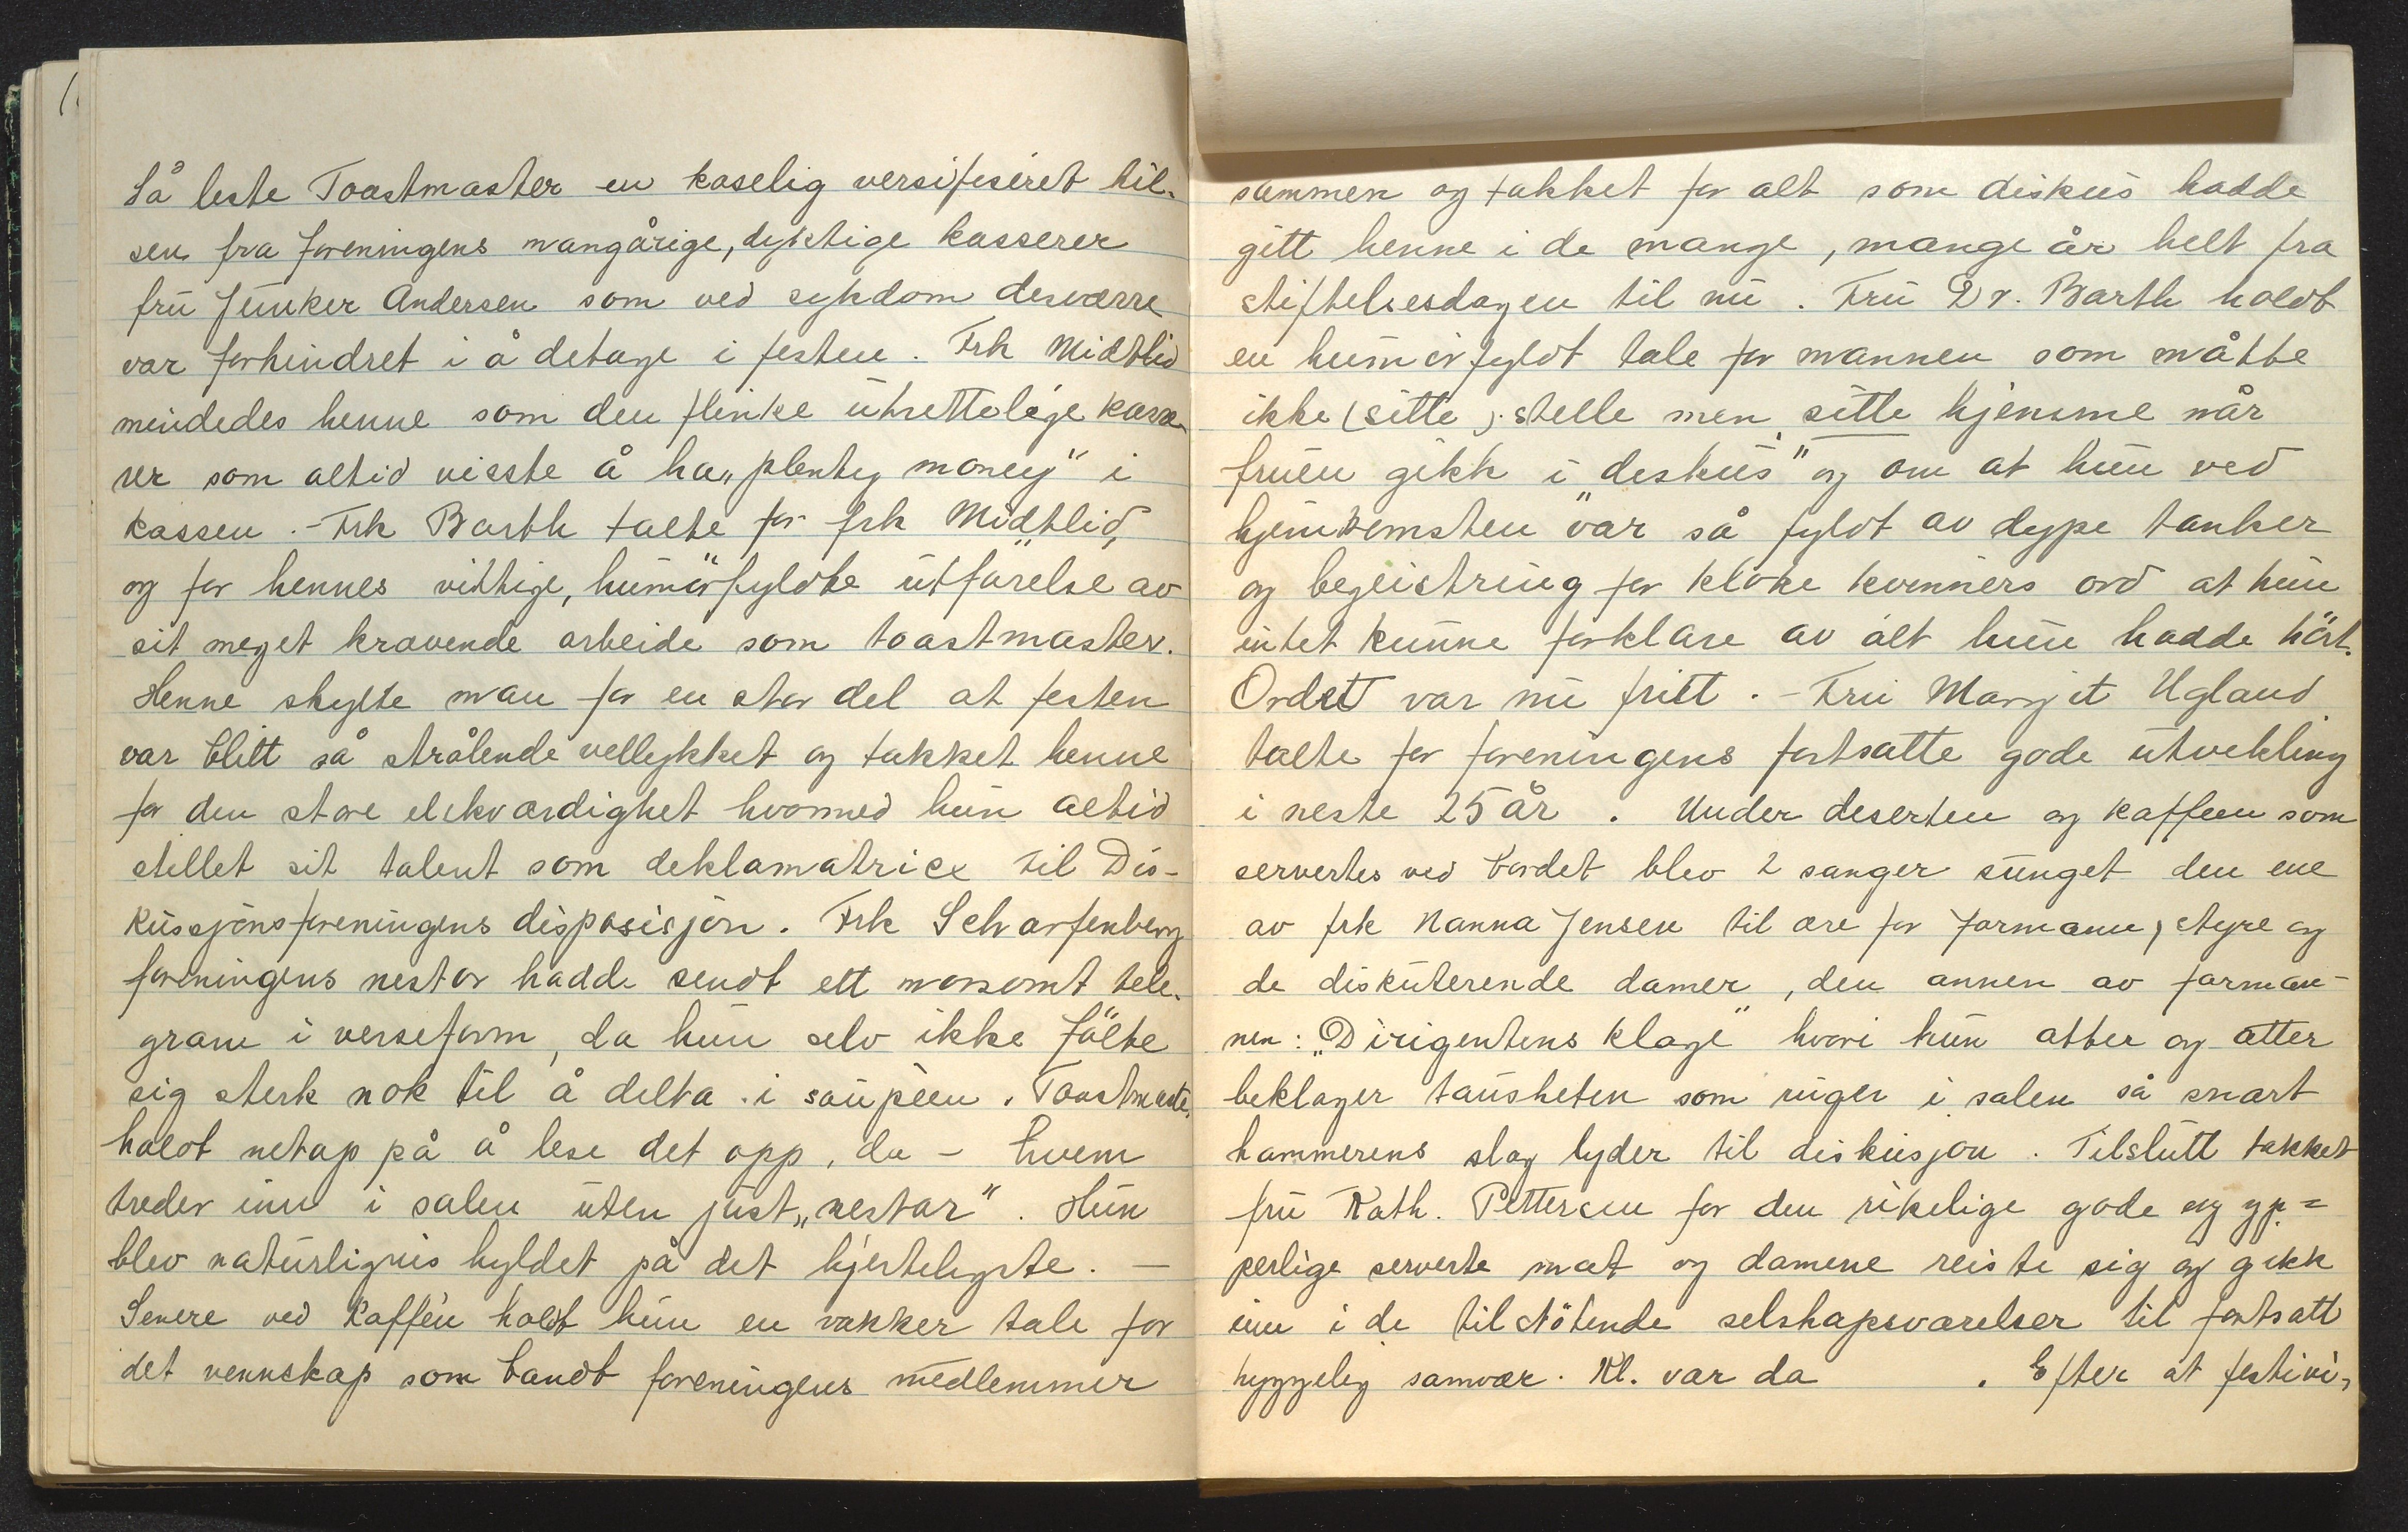 Så leste Toastmaster en koselig versifiseret hil-
sen fra foreningens mangårige, dyktige kasserer
fru Junker Andersen som ved sykdom desværre
var forhindret i å detage i festen. Frk Midtlid
mindedes henne som den flinke utrettelige kasse-
rer som altid visste å ha „plenty money" i
kassen. - Frk Barth talte for frk Midtlid,
og for hennes vittige, humörfyldte utförelse av
sit meget krævende arbeide som toastmaster.
Henne skylte man for en stor del at festen
var blitt så strålende vellykket og takket henne
for den store elskværdighet hvormed hun altid
stillet sit talent som deklamatrice til Dis-
kussjonsforeningens disposisjon. Frk Scharfenberg
foreningens nestor hadde sendt ett morsomt tele-
gram i verseform, da hun selv ikke fölte
sig sterk nok til å delta i soupéen. Toastmaste.
holdt netop på å lese det opp, da - hvem
treder inn i salen uten just „nestor". Hun
blev naturligvis hyldet på det hjerteligste. —
Senere ved kaffén holdt hun en vakker tale for
det vennskap som bandt foreningens medlemmer
sammen og takket for alt som diskus hadde
gitt henne i de mange, mange år helt fra
stiftelsesdagen til nu. Fru Dr. Barth holdt
en humörfyldt tale for mannen som måtte
ikke (sitte) stelle men sitte hjemme når
fruen gikk i „diskus" og om at hun ved
hjemkomsten var så fyldt av dype tanker
og begeistring for kloke kvinners ord at hun
intet kunne forklare av alt hun hadde hört.
Ordet var nu fritt. - Fru Margit Ugland
talte for foreningens fortsatte gode utvekling
i neste 25 år. Under deserten og kaffeen som
servertes ved bordet blev 2 sanger sunget den ene
av frk Nanna Jensen til ære for formann, styre og
de diskuterende damer, den annen av forman-
nen: „Dirigentens klage" hvori hun atter og atter
beklager tausheten som ruger i salen så snart
hammerens slag lyder til diskusjon. Tilslutt takket
fru Kath. Pettersen for den rikelige gode og yp=
perlige serverte mat og damene reiste sig og gikk
inn i de tilstötende selskapsværelser til fortsatt
hyggelig samvær. Kl. var da . Efter at festivi-